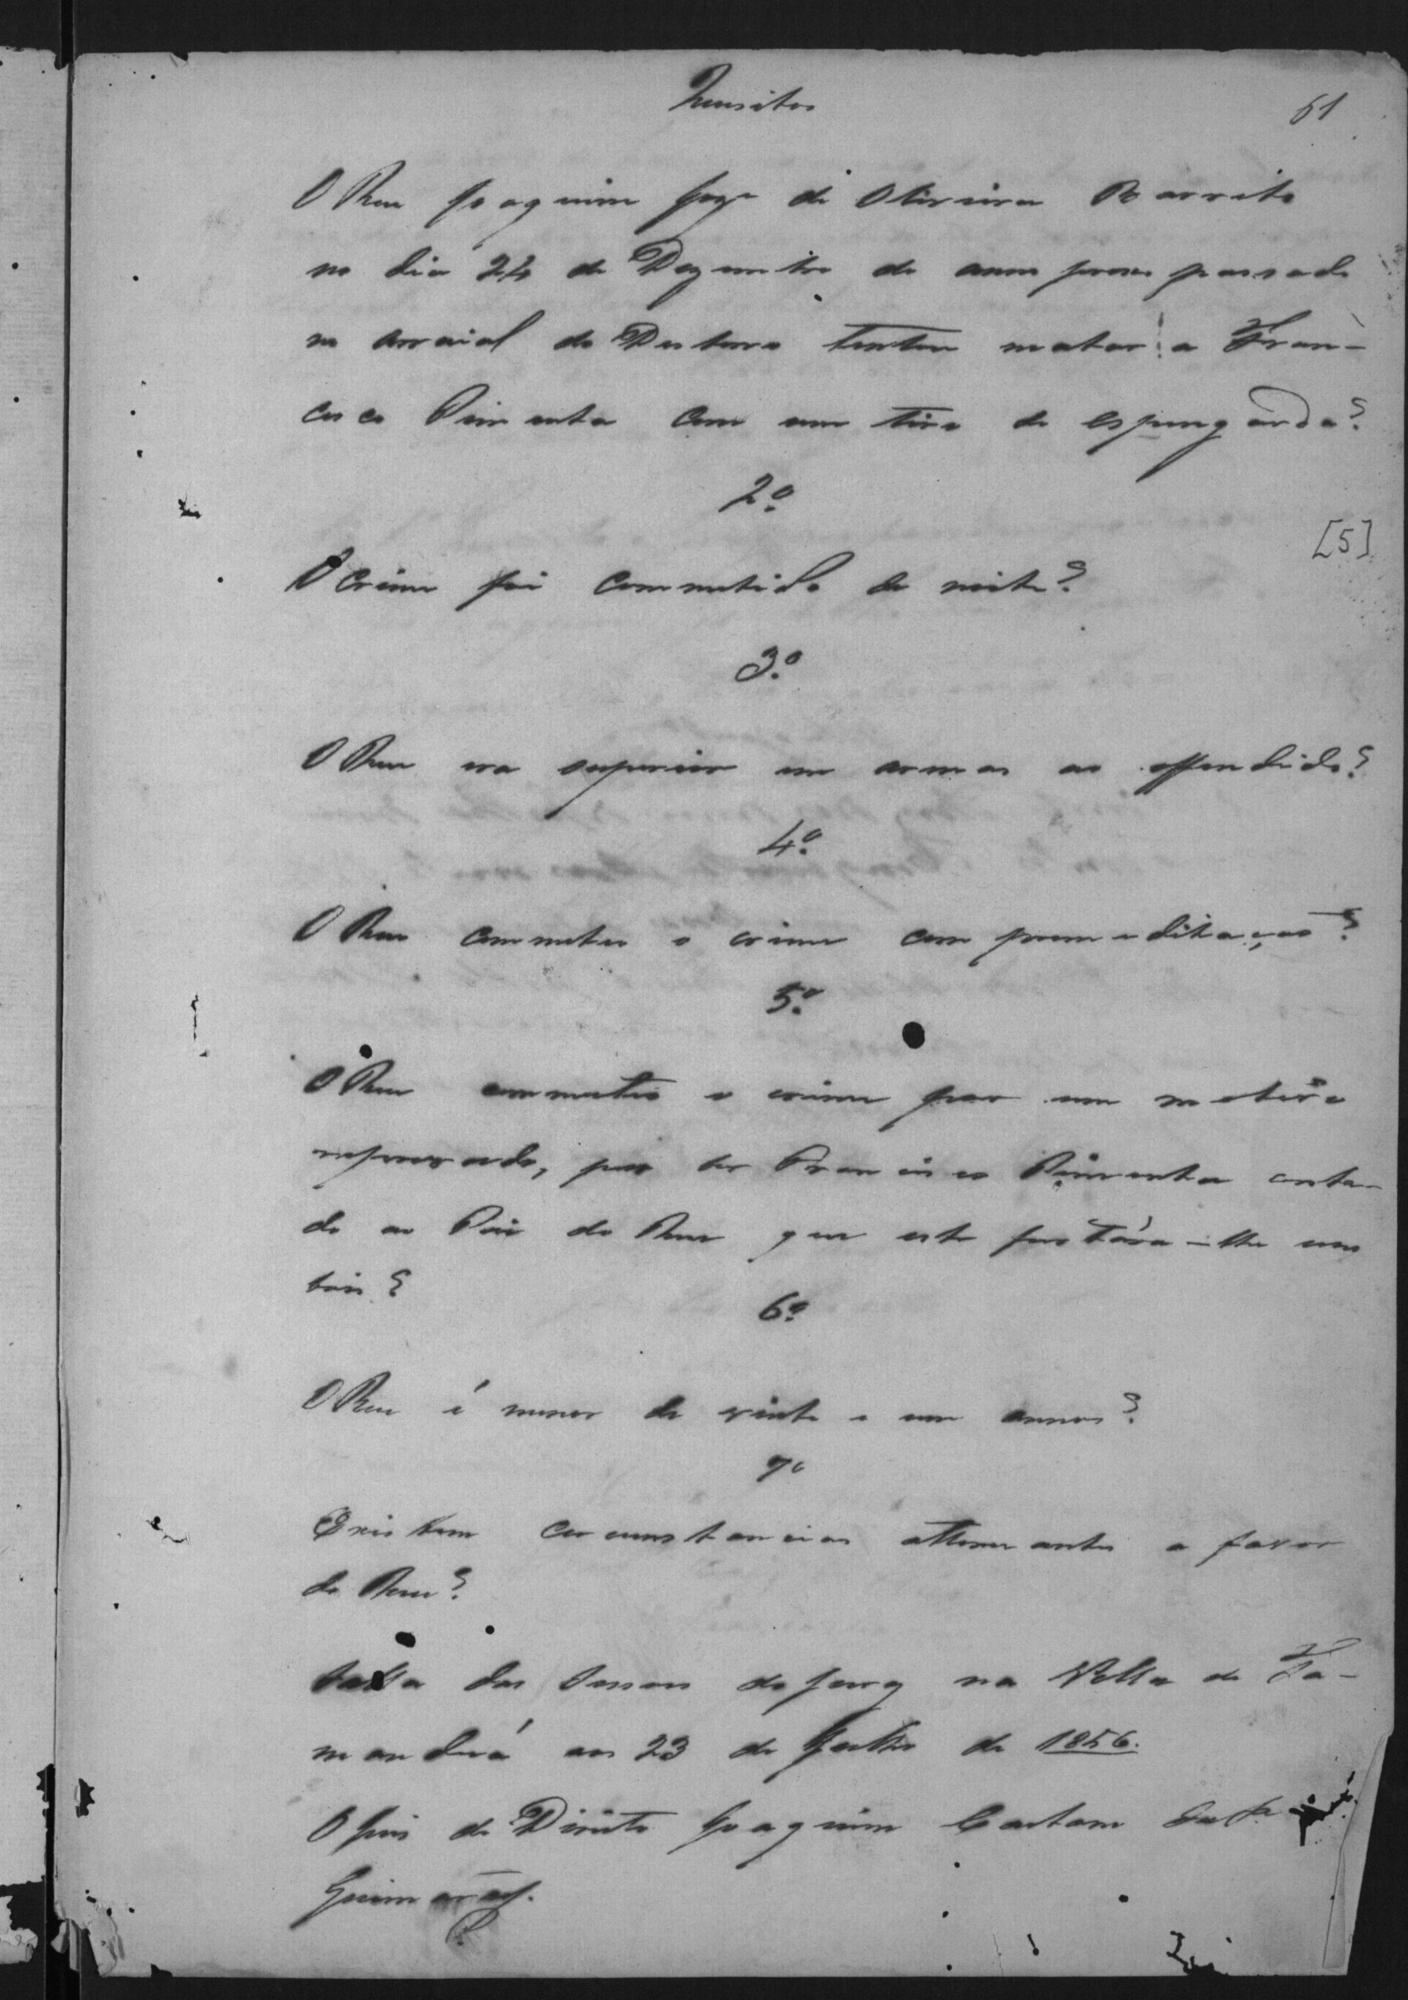 Quesitos
61
O Reu Joaquim Jose de Oliveira Barreto
no dia 24 de Dezembro do anno proxo passado
no arraial do Desterro tentou matar a Fran-
cisco Pimenta com um tiro de espingarda?
2º
[5]
O crime foi commettido de noite?
3º
O Reu era superior em armas ao offendido?
4º
O Reu commetteo o crime com premeditação?
5º
O Reu commetteo o crime por um motivo
reprovado, por ter Francisco Pimenta conta-
do ao Pai do Reu que este furtára-lhe um
6º
O Reu é menor de vinte e um annos?
7º
Existem circunstancias attenuantes a favor
do Reu?
Salla das Sessoes do jury na Villa de Ta-
manduá aos 23 de Julho de 1856.
O Juis de Direito Joaquim Caetano
Guimarães.